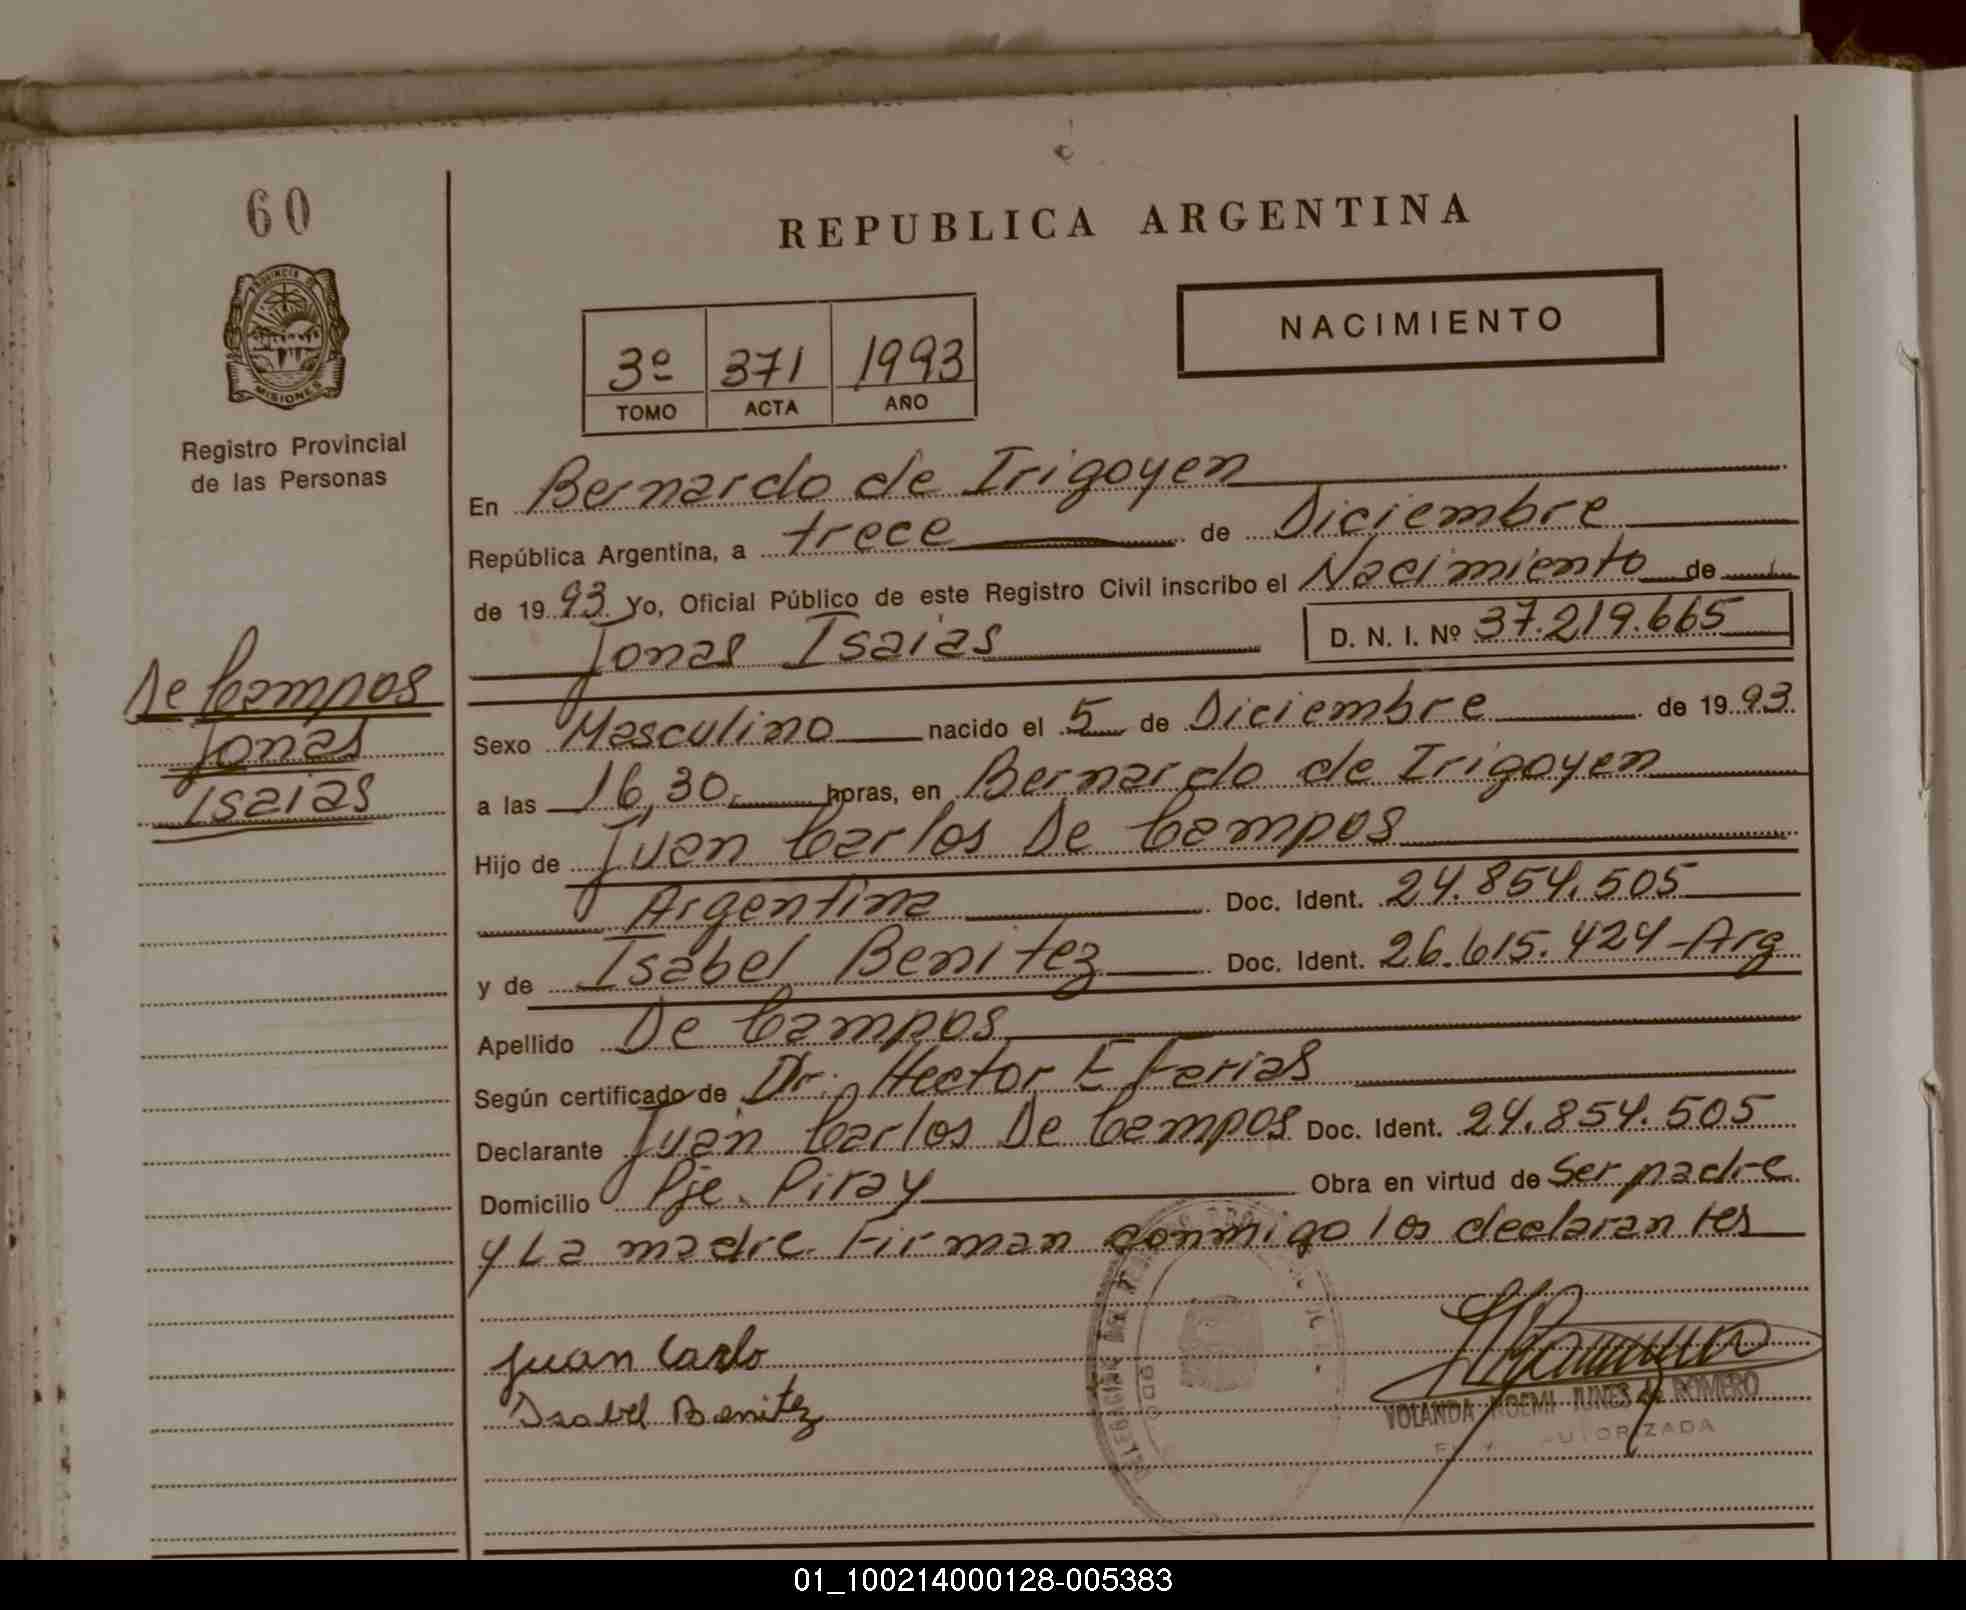 60
REPUBLICA ARGENTINA
PROVINCIA DE
MISIONES
NACIMIENTO
3º 371 1993
TOMO ACTA AÑO
Registro Provincial
de las Personas
En Bernardo de Irigoyen
República Argentina, a trece de Diciembre
de 1993 Yo, Oficial Público de este Registro Civil inscribo el Nacimiento de
Jonas Isaias D. N. I. Nº 37.219.665
De Campos
Jonas
Isaias
Sexo Masculino nacido el 5 de Diciembre de 1993
a las 16,30 horas, en Bernardo de Irigoyen
Hijo de Juan Carlos De Campos
Argentina Doc. Ident. 24.854.505
y de Isabel Benitez Doc. Ident. 26.615.424-Arg
Apellido De Campos
Según certificado de Dr. Hector E Farias
Declarante Juan Carlos De Campos Doc. Ident. 24.854.505
Domicilio Pje. Piray Obra en virtud de Ser padre
y La madre. Firman conmigo los declarantes
Juan Carlo
Isabel Benitez
YOLANDA NOEMI JUNES de ROMERO
AUTORIZADA
01_100214000128-005383